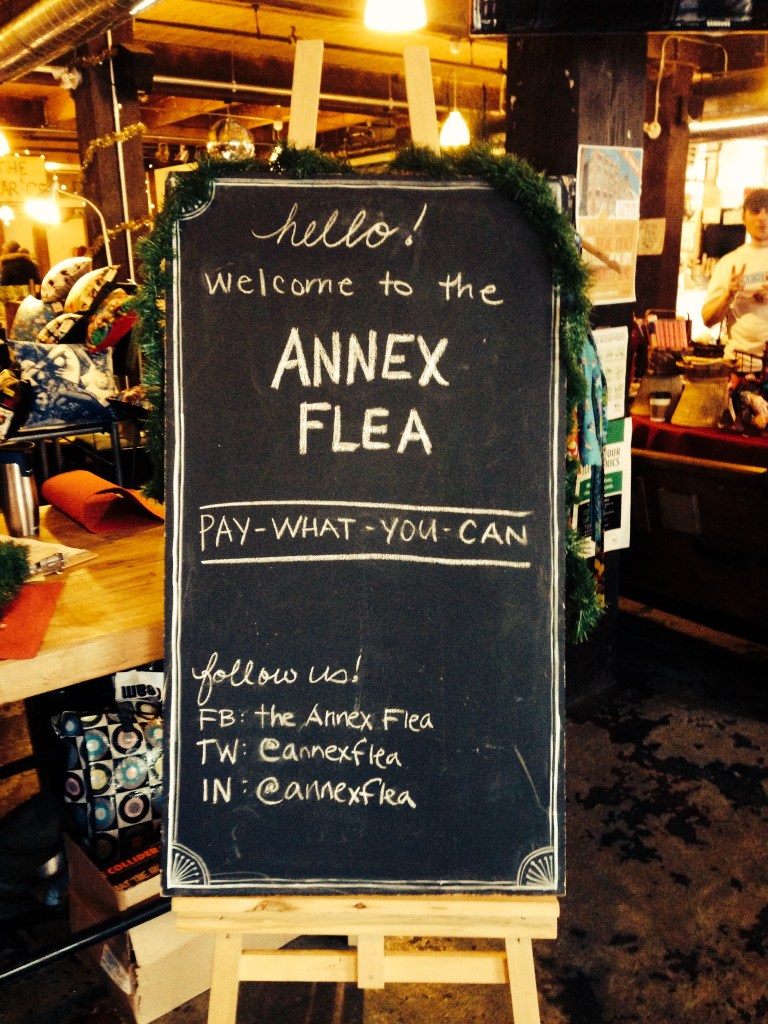 hello!
welcome to the
ANNEX
FLEA
PAY-WHAT-YOU-CAN
follow us!
FB: the Annex Flea
TW: @annexflea
IN: @annexflea
THE
COLLIDER